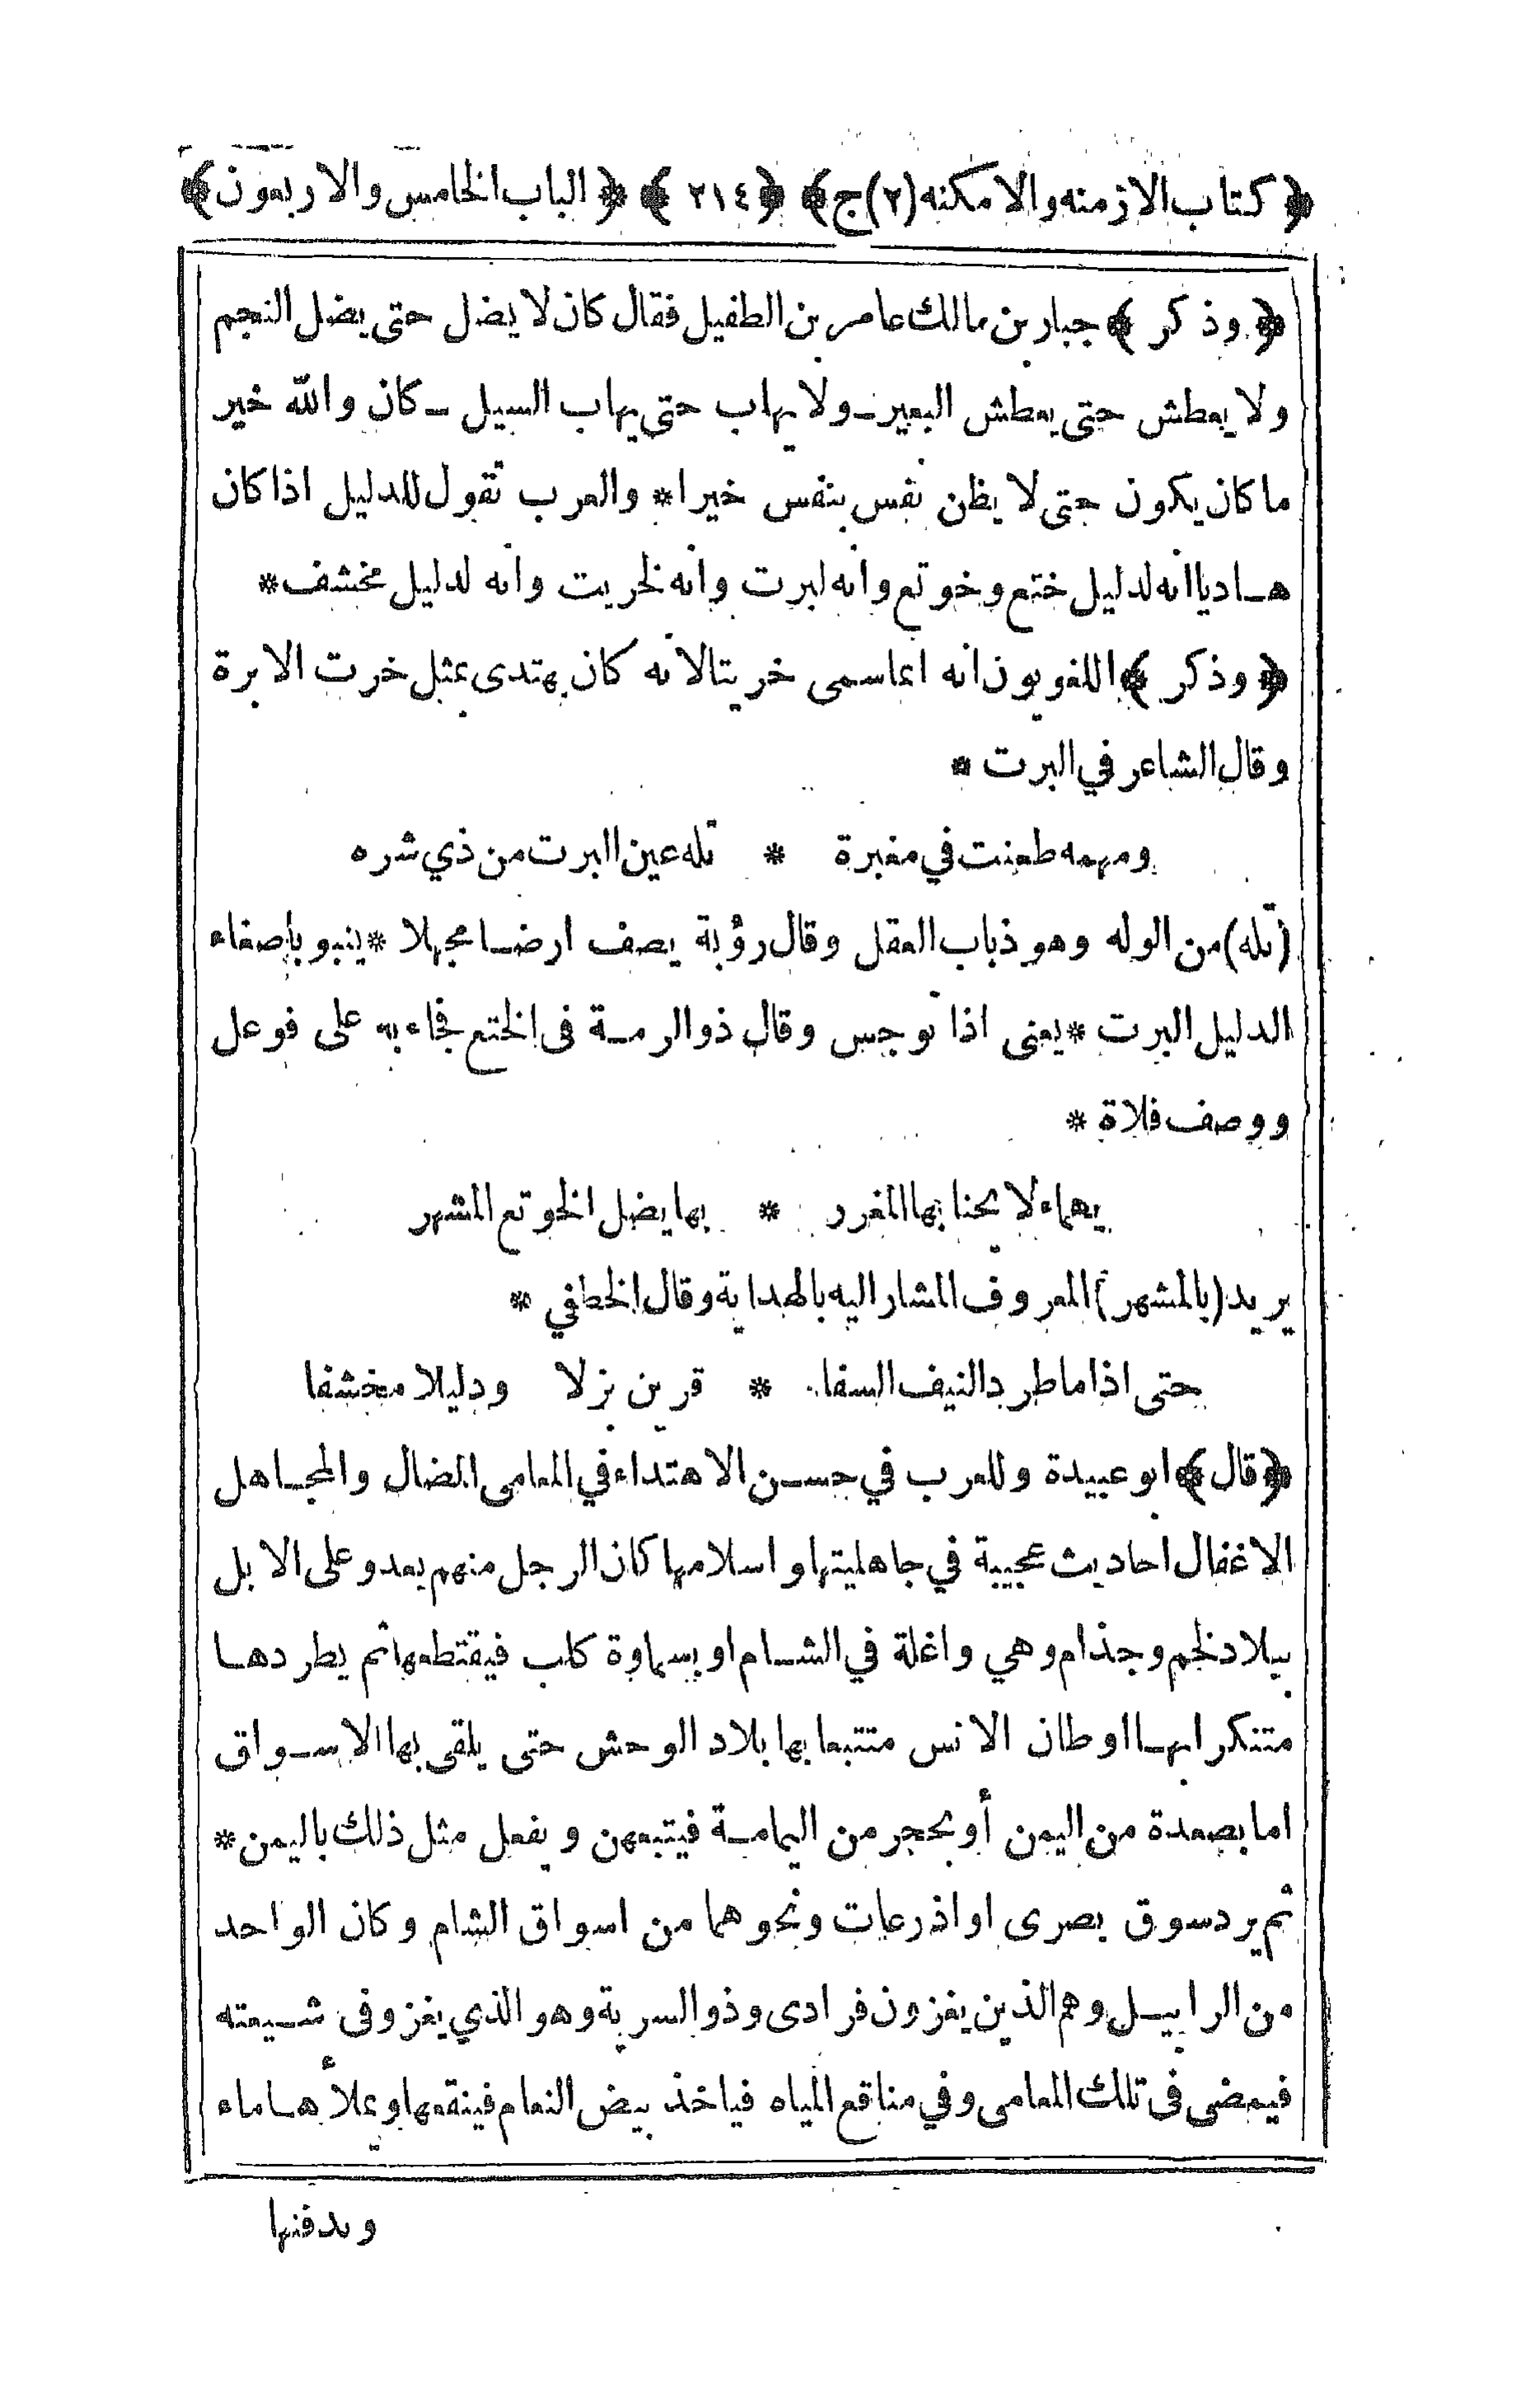 ﴿ كتاب الازمنه والامكنه (٢) ج ﴾ ﴿ ٢١٤ ﴾ ﴿ الباب الخامس والاربعون ﴾
﴿ وذكر ﴾ جبار بن مالك عامر بن الطفيل فقال كان لا يضل حتى يضل النجم
ولا يعطش حتى يعطش البعير ـ ولا يهاب حتى يهاب السيل ـ كان والله خير
ما كان يكون حتى لا يظن نفس بنفس خيرا * والعرب تقول للدليل اذا كان
هاديا انه لدليل ختع وخوتع وانه لبرت وانه لخريت وانه لدليل مخشف *
﴿ وذكر ﴾ اللغويون انه انما سمى خريتا لانه كان يهتدى بمثل خرت الابرة
وقال الشاعر في البرت *
ومهمه طعنت في مغبرة * تله عين البرت من ذي شره
(تله) من الوله وهو ذباب العقل وقال رؤبة يصف ارضا مجهلا * ينبو بأصغاء
الدليل البرت * يعنى اذا توجس وقال ذوالرمة فى الختع فجاء به على فوعل
ووصف فلاة *
يهماء لا يحنا بها المغرر * بها يضل الخوتع المشهر
يريد (بالمشهر) المعروف المشار اليه بالهداية وقال الخطفي *
حتى اذا ما طرد النيف السفا * قرين بزلا ودليلا مخشفا
﴿ قال ﴾ ابو عبيدة وللعرب في حسن الاهتداء في المعامى المضال والمجاهل
الاغفال احاديث عجيبة في جاهليتها واسلامها كان الرجل منهم يعدو على الابل
ببلاد لخم وجذام وهي واغلة في الشام او بسماوة كلب فيقتطعها ثم يطردها
متنكرا بها اوطان الانس متتبعا بها بلاد الوحش حتى يلقى بها الاسواق
اما بصعدة من اليمن أو بحجر من اليمامة فيتبعهن ويفعل مثل ذلك باليمن *
ثم يرد سوق بصرى او اذرعات ونحوهما من اسواق الشام وكان الواحد
من الرابيل وهم الذين يغزون فرادى وذوالسرية وهو الذي يغزو فى شيعته
فيمضى فى تلك المعامى وفي مناقع المياه فياخذ بيض النعام فينقعها ويملأها ماء
ويدفنها